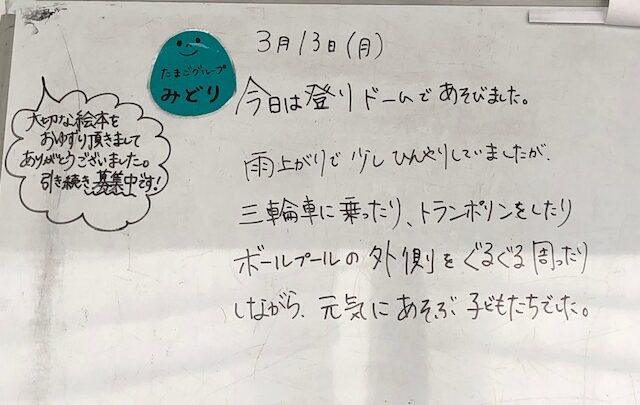 3月13日(月)
たまごグループ
みどり
今日は登りドームであそびました。
雨上がりで少しひんやりしていましたが、
三輪車に乗ったり、トランポリンをしたり
ボールプールの外側をぐるぐる周ったり
しながら、元気にあそぶ子どもたちでした。
大切な絵本を
おゆずり頂きまして
ありがとうございました。
引き続き募集中です!